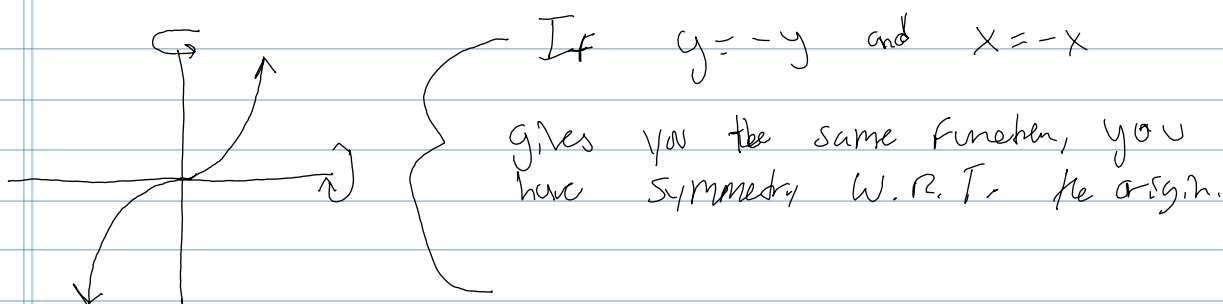 If y=-y and x=-x
gives you the same function, you
have symmetry W.R.T. the origin.